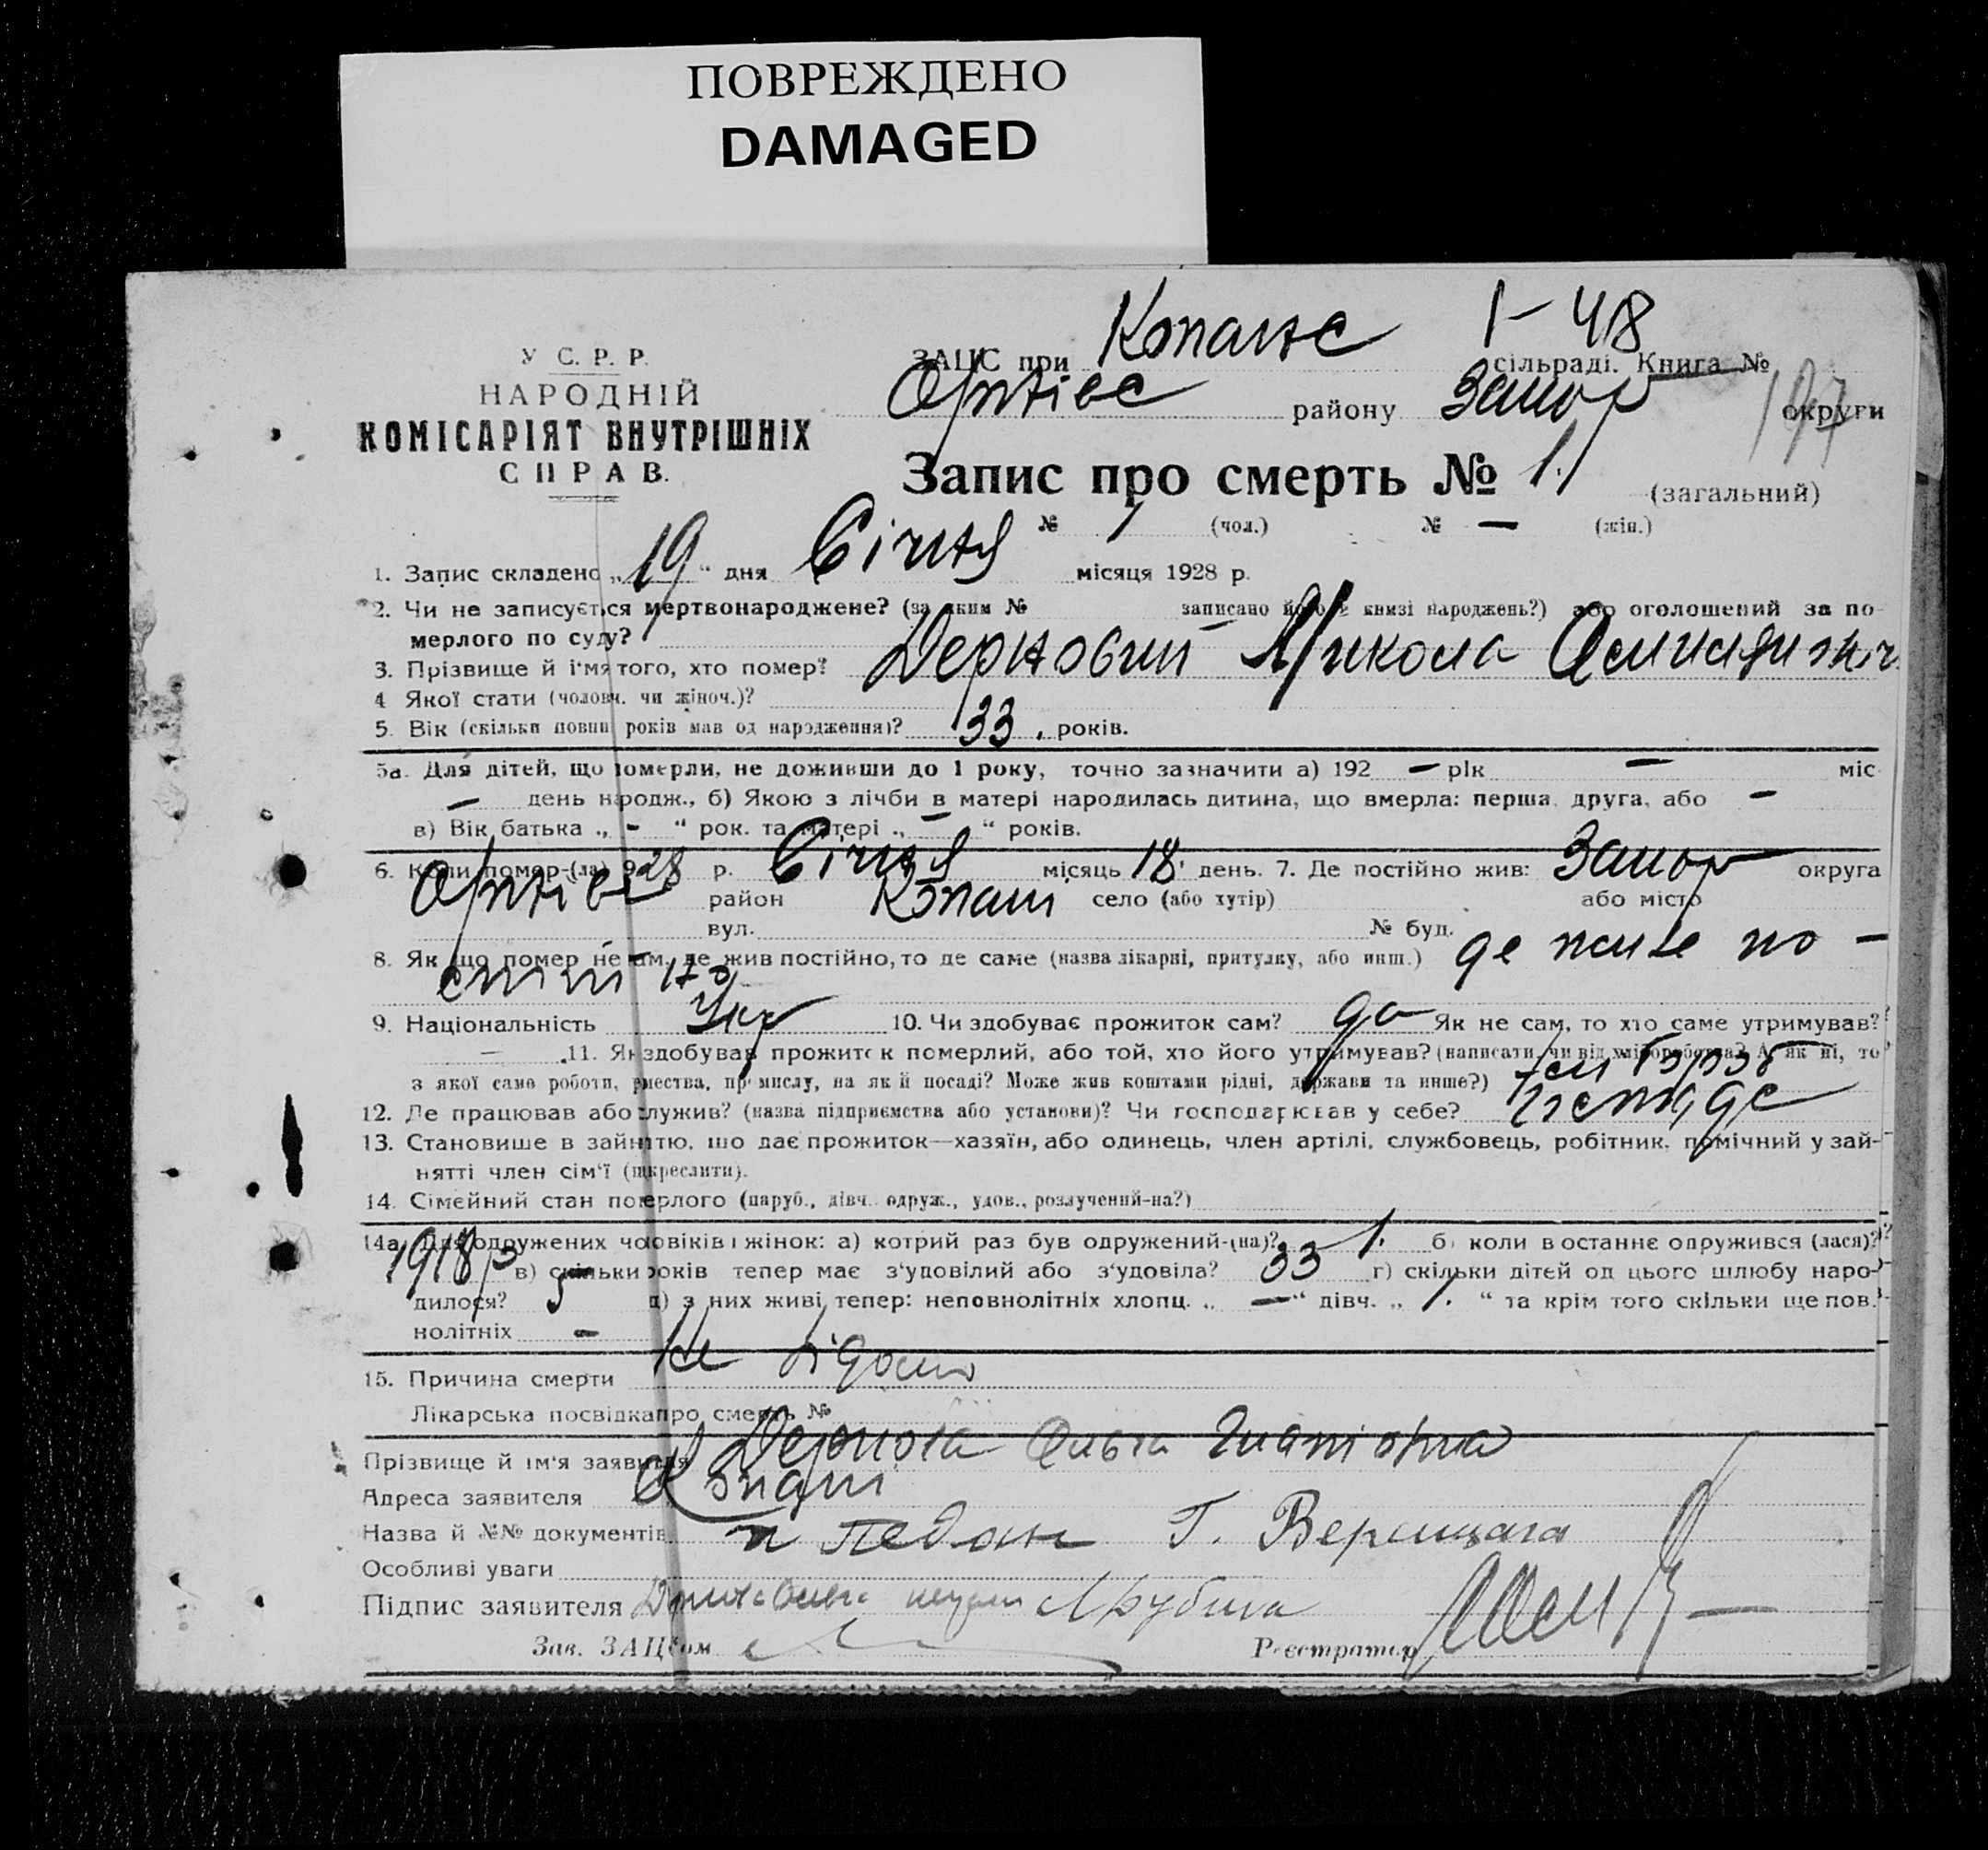 ПОВРЕЖДЕНО
DAMAGED
У С. Р. Р.
НАРОДНІЙ
КОМІСАРІЯТ ВНУТРІШНІХ
СПРАВ.
1-48
ЗАЦС при Копанс сільраді. Книга №
Оріхівс району Запор округи
197
Запис про смерть № 1. (загальний)
№ 1 (чол.) № — (жін.)
1. Запис складено „19“ дня Січня місяця 1928 р.
2. Чи не записується мертвонароджене? (за яким № записано його в книзі народжень?) або оголошений за по-
мерлого по суду?
3. Прізвище й ім'я того, хто помер? Микола
4 Якої стати (чоловч. чи жіноч.)?
5. Вік (скільки повни років мав од народження)? 33. років.
5а. Для дітей, що померли, не доживши до 1 року, точно зазначити а) 192 — рік — міс
— день народж., б) Якою з лічби в матері народилась дитина, що вмерла: перша, друга, або —
в) Вік батька „ - “ рок. та матері „ — “ років.
6. Коли помер-(ла) 1928 р. Січня місяць 18 день. 7. Де постійно жив: Запор округа
Оріхівс район Копани село (або хутір) або місто
вул. № буд.
8. Якщо помер не там, де жив постійно, то де саме (назва лікарні, притулку, або инш.) де живе по-
стійно
9. Національність Укр 10. Чи здобуває прожиток сам? да Як не сам, то хто саме утримував?
— 11. Як здобував прожиток померлий, або той, хто його утримував? (написати, чи від хліборобства? А як ні, то
з якої само роботи, ремества, промислу, на якій посаді? Може жив коштами рідні, держави та инше?)
12. Де працював або служив? (назва підприємства або установи)? Чи господарював у себе?
13. Становише в зайняттю, що дає прожиток—хазяїн, або одинець, член артілі, службовець, робітник, помічний у зай-
нятті член сім'ї (підкреслити).
14. Сімейний стан померлого (паруб., дівч. одруж., удов., розлучений-на?)
14а. Для одружених чоловіків і жінок: а) котрий раз був одружений-(на)? 1. б) коли в останнє одружився (лася)?
1918 р в) скільки років тепер має з'удовілий або з'удовіла? 33 г) скільки дітей од цього шлюбу наро-
дилося? 5 д) з них живі тепер: неповнолітніх хлопц. „ — “ дівч. „ 1. “ та крім того скільки ще пов.
нолітніх —
15. Причина смерти Не відомо
Лікарська посвідка про смерть №
Прізвище й ім'я заявителя Ольга Гнатівна
Адреса заявителя Копани
Назва й №№ документів Г. Верещага
Особливі уваги
Підпис заявителя
Зав. ЗАЦСом Реєстратор